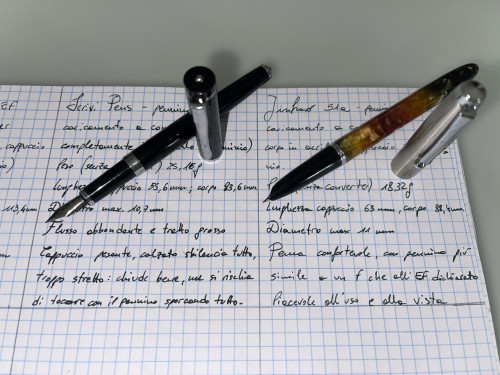 EF
cappuccio
113,6mm
Pens - pennino
caricamento a
completamente
Peso (senza 25,16g
Lunghezza cappuccio 55,6mm; corpo 83,6mm
Diametro max. 10,7mm
Flusso abbondante e tratto grosso
Cappuccio pesante, calzato sbilancia tutto,
troppo stretto: chiude bene, ma si rischia
di toccare con il pennino sporcando tutto.
Jinhao 51a -
caricamento a
corpo in cappuccio
nio.
converter) 18,32g
Lunghezza cappuccio 63mm, corpo 88,4mm
Diametro max 11 mm
Penna confortevole, con pennino più
simile a un f che all'EF dichiarato
Piacevole all'uso e alla vista